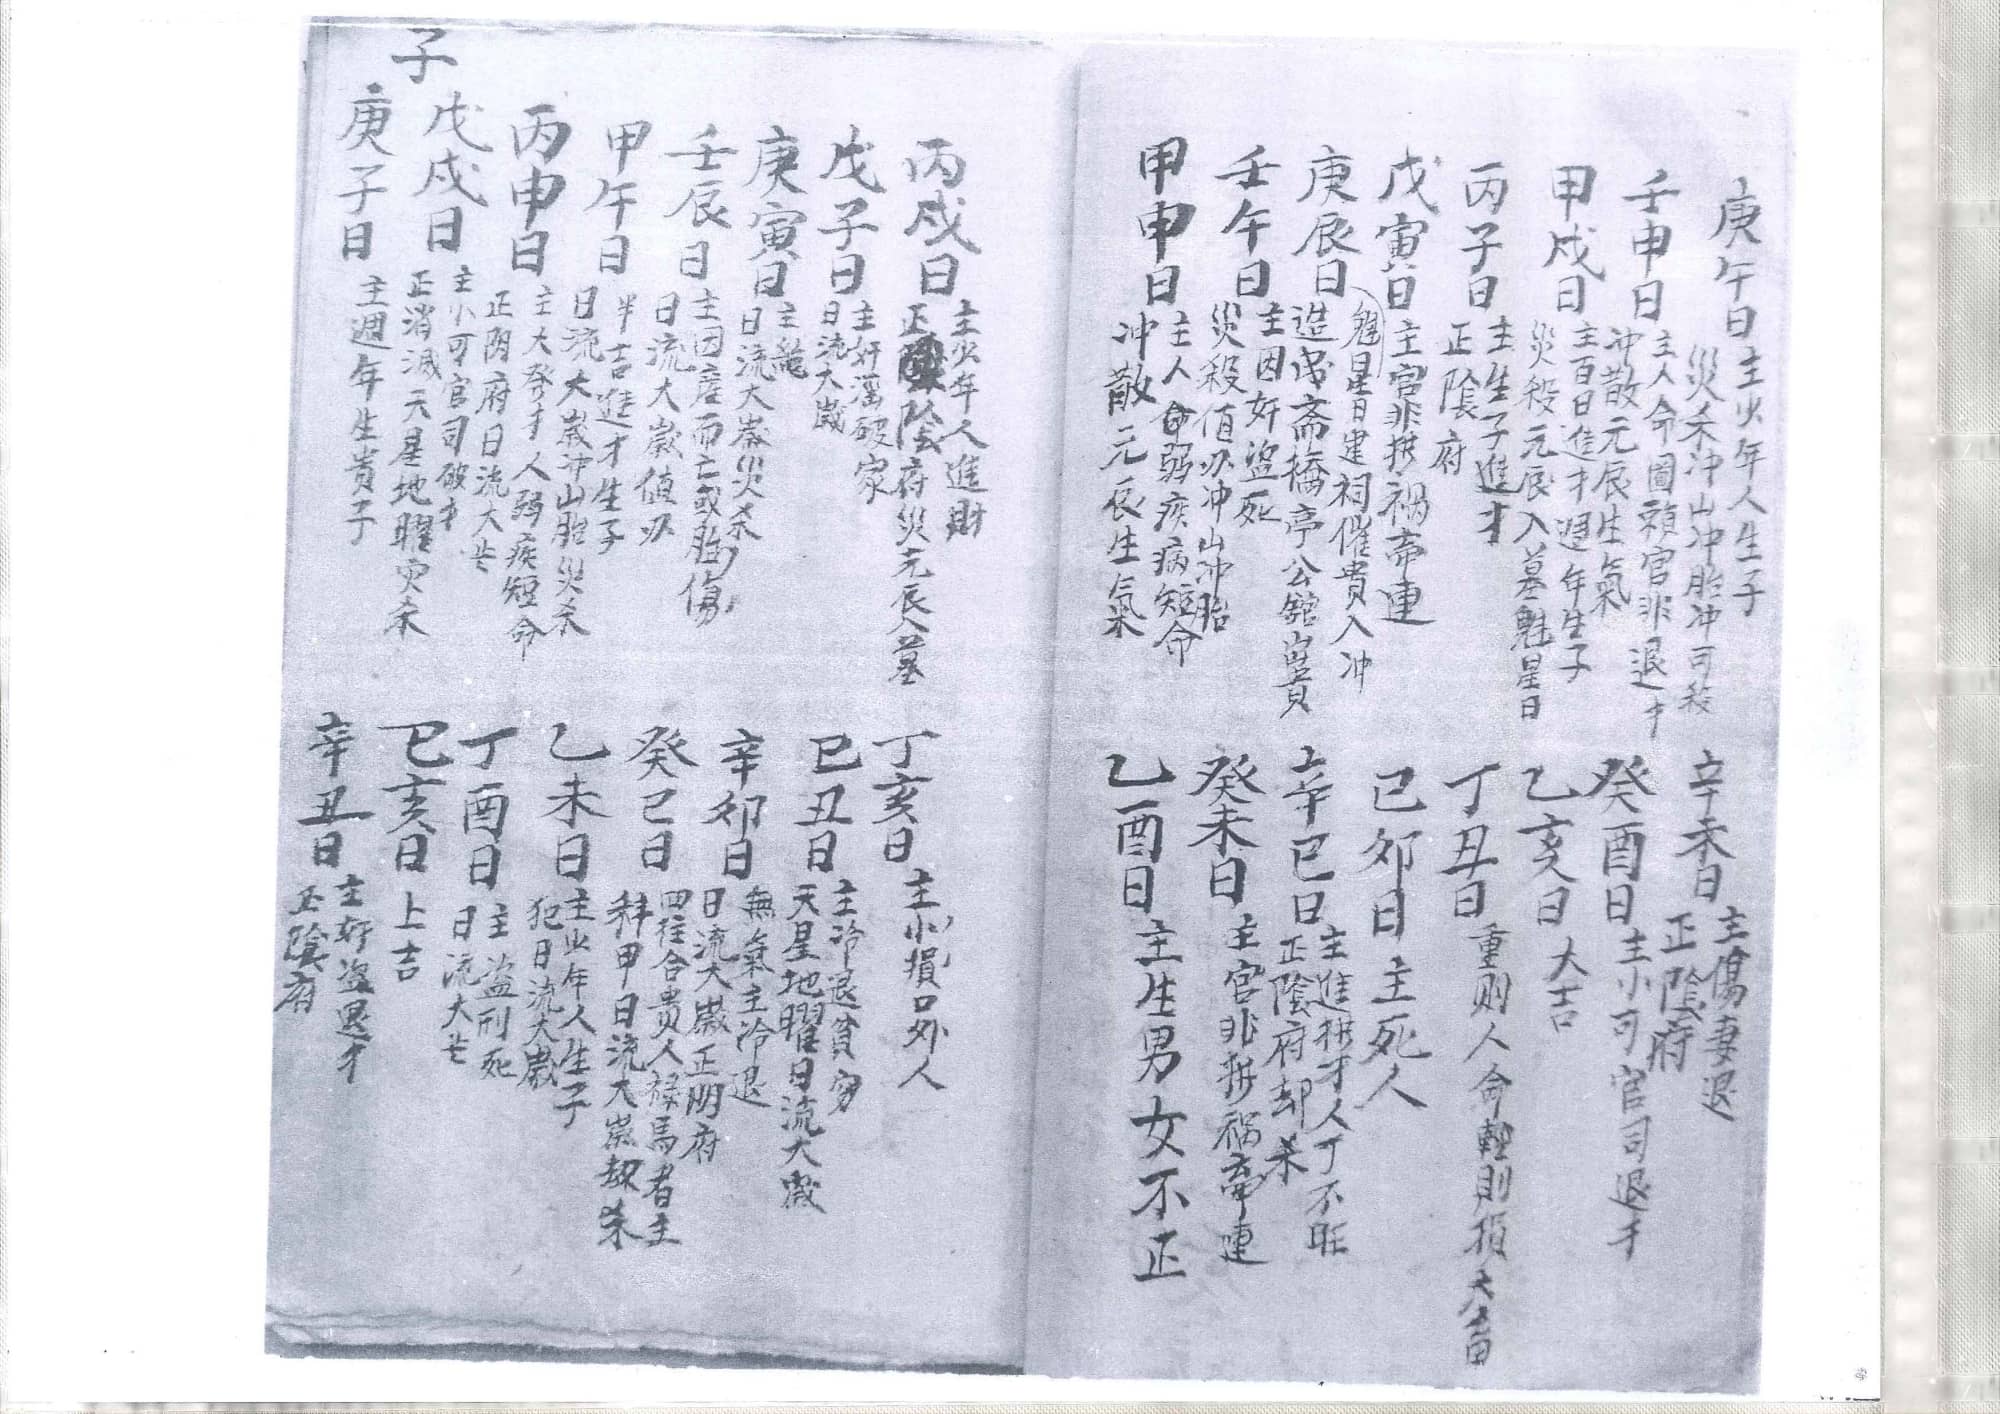 庚午日
主少年人生子
災杀冲山冲胎冲可殺
壬申日
主人命圖賴官非退才
冲散元辰生氣
甲戌日
主百日進才週年生子
災殺元辰入墓魁星日
丙子日
主生子進才
正陰府
戊寅日
主官非拱禍帝連
魁星日建祠催貴入冲
庚辰日
造成斋橋亭公舘
壬午日
主因奸盜死
災殺值双冲山冲胎
甲申日
主人命弱疾病短命
冲散元辰生氣
辛未日
主傷妻退
正陰府
癸酉日
主小可官司退才
乙亥日
大吉
丁丑日
重則人命輕則損大畜
己卯日
主死人
辛巳日
主進拱才人丁不旺
正陰府却杀
癸未日
主官非拱禍帝連
乙酉日
主生男女不正
丙戌日
主少年人進財
正陰府災元辰入墓
戊子日
主奸滛破家
日流大歲
庚寅日
日流大歲災杀
壬辰日
主因産而亡或胎傷
日流大歲值双
甲午日
半吉進才生子
日流大歲冲山胎災杀
丙申日
主大發才人弱疾短命
正阴府日流大
子
戊戌日
主小可官司破才
正消滅天星地曜灾杀
庚子日
主週年生貴子
丁亥日
主小損口外人
己丑日
主冷退貧穷
天星地曜日流大歲
辛卯日
無氣主冷退
日流大歲正阴府
癸巳日
四柱合贵人禄馬者主
科甲日流大歲劫杀
乙未日
主少年人生子
犯日流大歲
丁酉日
主盜刑死
日流大
己亥日
上吉
辛丑日
主奸盜退才
正陰府